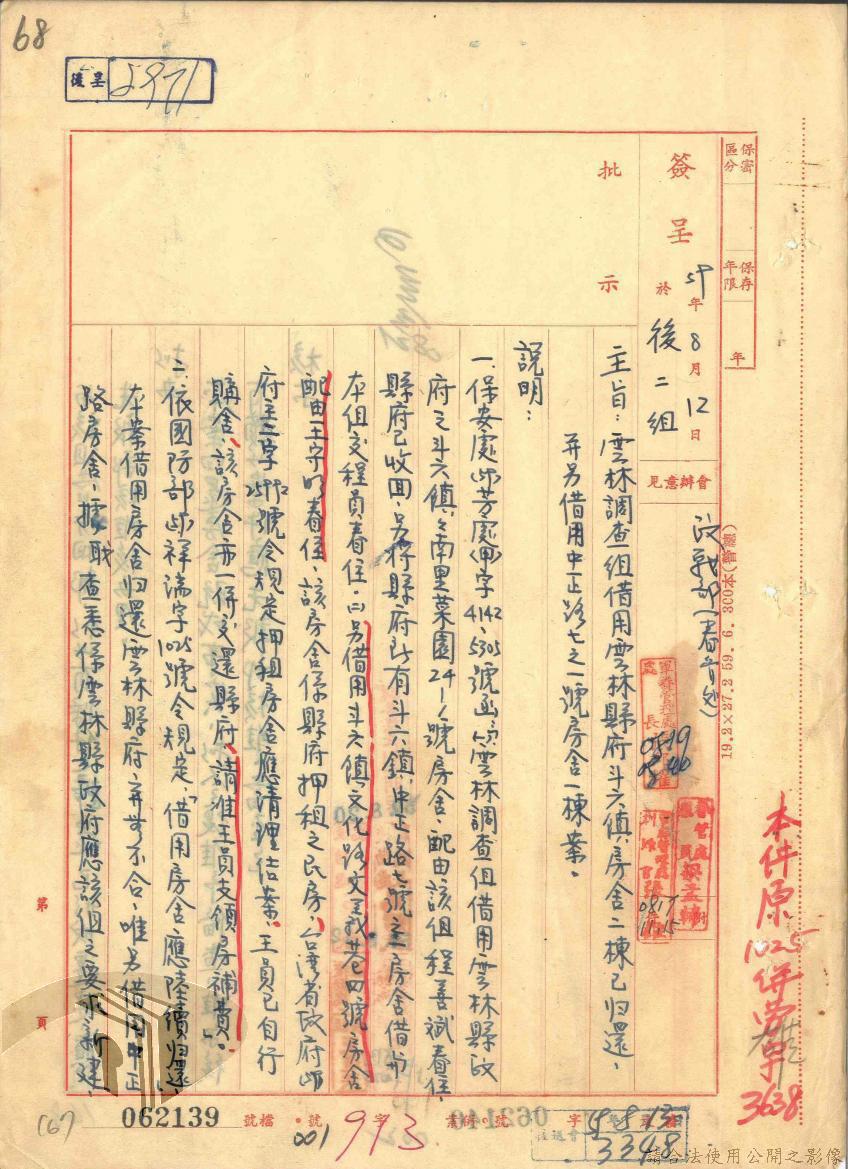 68
後呈 5971
保密區分
保存年限
年
簽呈
59年8月12日
於 後二組
會辦意見
政戰部(眷管處)
19.2×27.2 59. 6. 300本(普總)
批示
主旨:雲林調查組借用雲林縣府斗六鎮房舍二棟已归還、
并另借用中正路七之一號房舍一棟案。
說明:
一、保安處 芳處 字4142、5305號函 雲林調查組借用雲林縣政
府之斗六鎮、南里菜園24-1號房舍、配由該組程善斌眷住、
縣府已收回、另將縣府所有斗六鎮、中正路七號之一房舍借予
本組交程員眷住。㈡另借用斗六鎮文化路文 巷四號房舍
配由王守 眷住、該房舍係縣府押租之民房、台灣省政府
府主二字 號令規定押租房舍應清理结案、王員已自行
購舍、該房舍亦一併交還縣府、請准王員支領房補費。」
二、依國防部 祥湍字1025號令規定、「借用房舍應陸續归還、」
本案借用房舍归還雲林縣府并無不合、唯另借用中正
路房舍、據 查悉係雲林縣政府應該組之要求新建、
本件原1025併 字3638
第 頁
(67)
062139
檔號
001
號
973
字
59 8 13
3348
請合法使用公開之影像